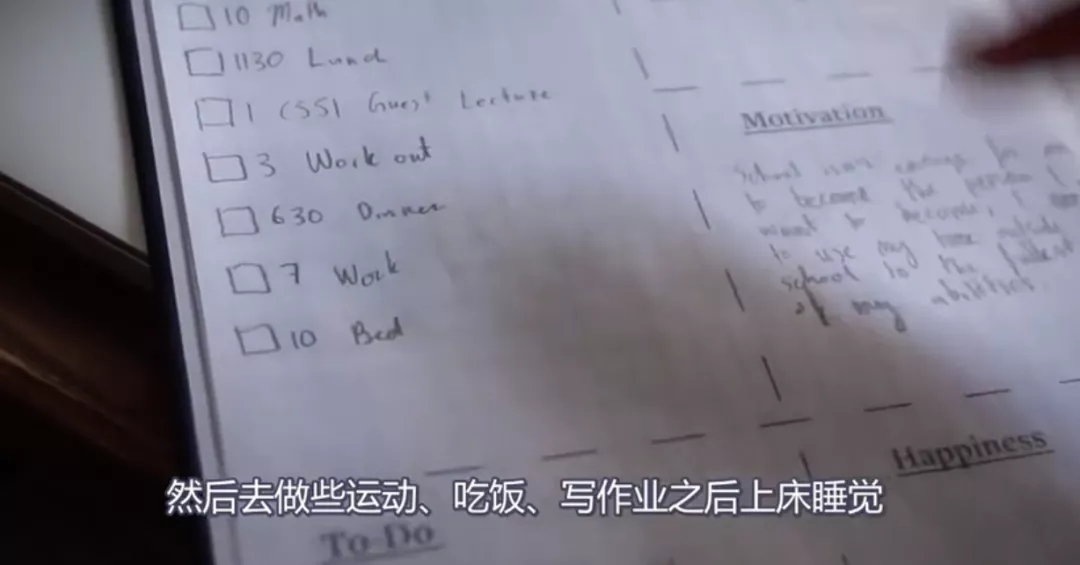 10 Math
1130 Lunch
1 CSSI Guest Lecture
3 Work out
630 Dinner
7 Work
10 Bed
Motivation
School isn't enough for me
to become the person I
want to become, I
to use my time outside
school to the fullest
of my abilities.
Happiness
然后去做些运动、吃饭、写作业之后上床睡觉
To Do